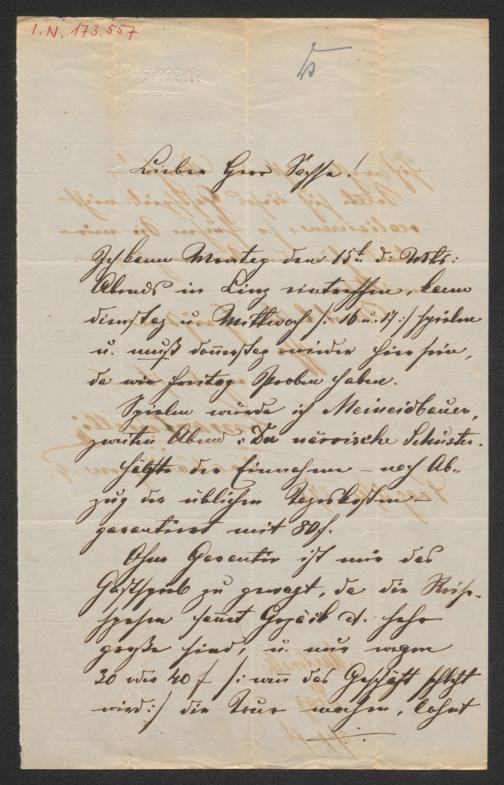 I.N. 173.557
Martinelli
Lieber Herr Sachse!
Ich kann Montag den 15t. d: Mts:
Abends in Linz eintreffen, kann
dienstag u. Mittwoch /: 16 u. 17 :/ spielen
u. muß donnerstag wieder hier sein,
da wir freitag Proben haben.
Spielen würde ich Meineidbauer,
zweiten Abend: Der närrische Schuster.
Hälfte der Einnahme – nach Ab-
zug der üblichen Tageskosten –
garantiert mit 80f.
Ohne Garantie ist mir das
Gastspiel zu gewagt, da die Reise-
spesen sammt Gepäck etc. sehr
große sind, u. nur wegen
30 oder 40 f /: wenn das Geschäft schlecht
wird :/ die Tour machen, lohnt